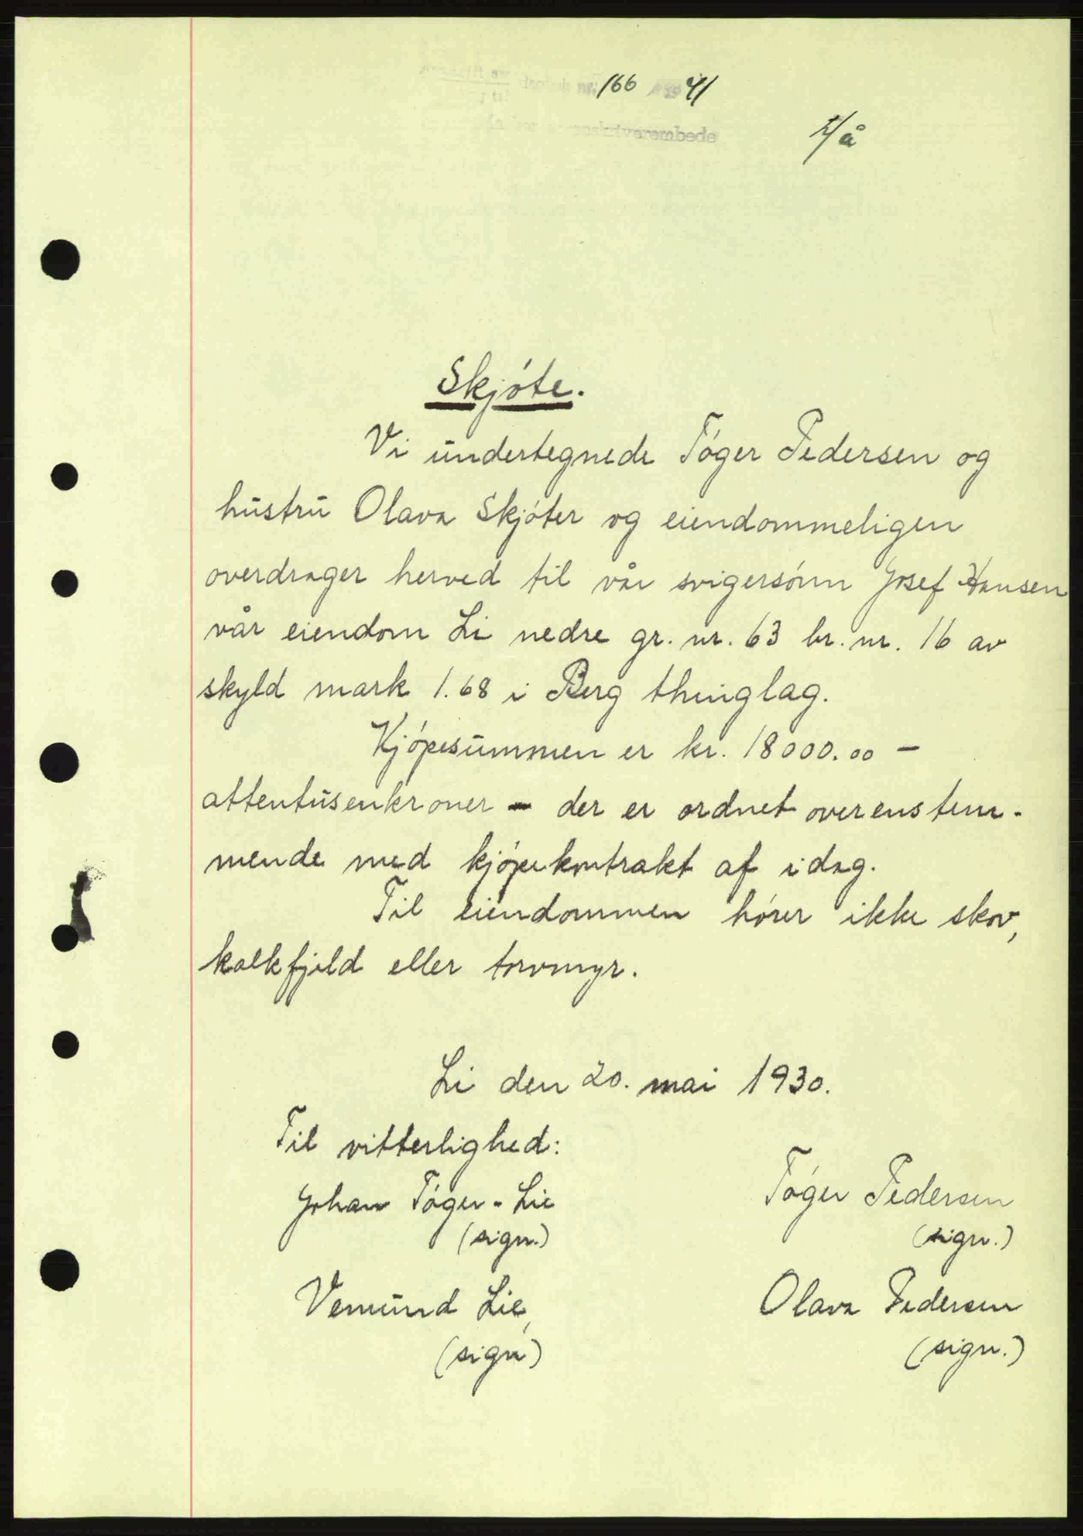 166 41
Skjøte.
Vi undertegnede Tøger Pedersen og
hustru Olava Skjøter og eiendommeligen
overdrager herved til vår svigersønn Josef Hansen
vår eiendom Li nedre gr. nr. 63 br. nr. 16 av
skyld mark 1.68 i Berg thinglag.
Kjøpesummen er kr. 18000.00 —
attentusenkroner — der er ordnet overenstem-
mende med kjøpekontrakt af idag.
Til eiendommen hører ikke skov,
kalkfjeld eller torvmyr.
Li den 20. mai 1930.
Til vitterlighed:
Johan Tøger-Lie
(sign.)
Tøger Pedersen
(sign.)
Vemund Lie,
(sign)
Olava Pedersen
(sign.)